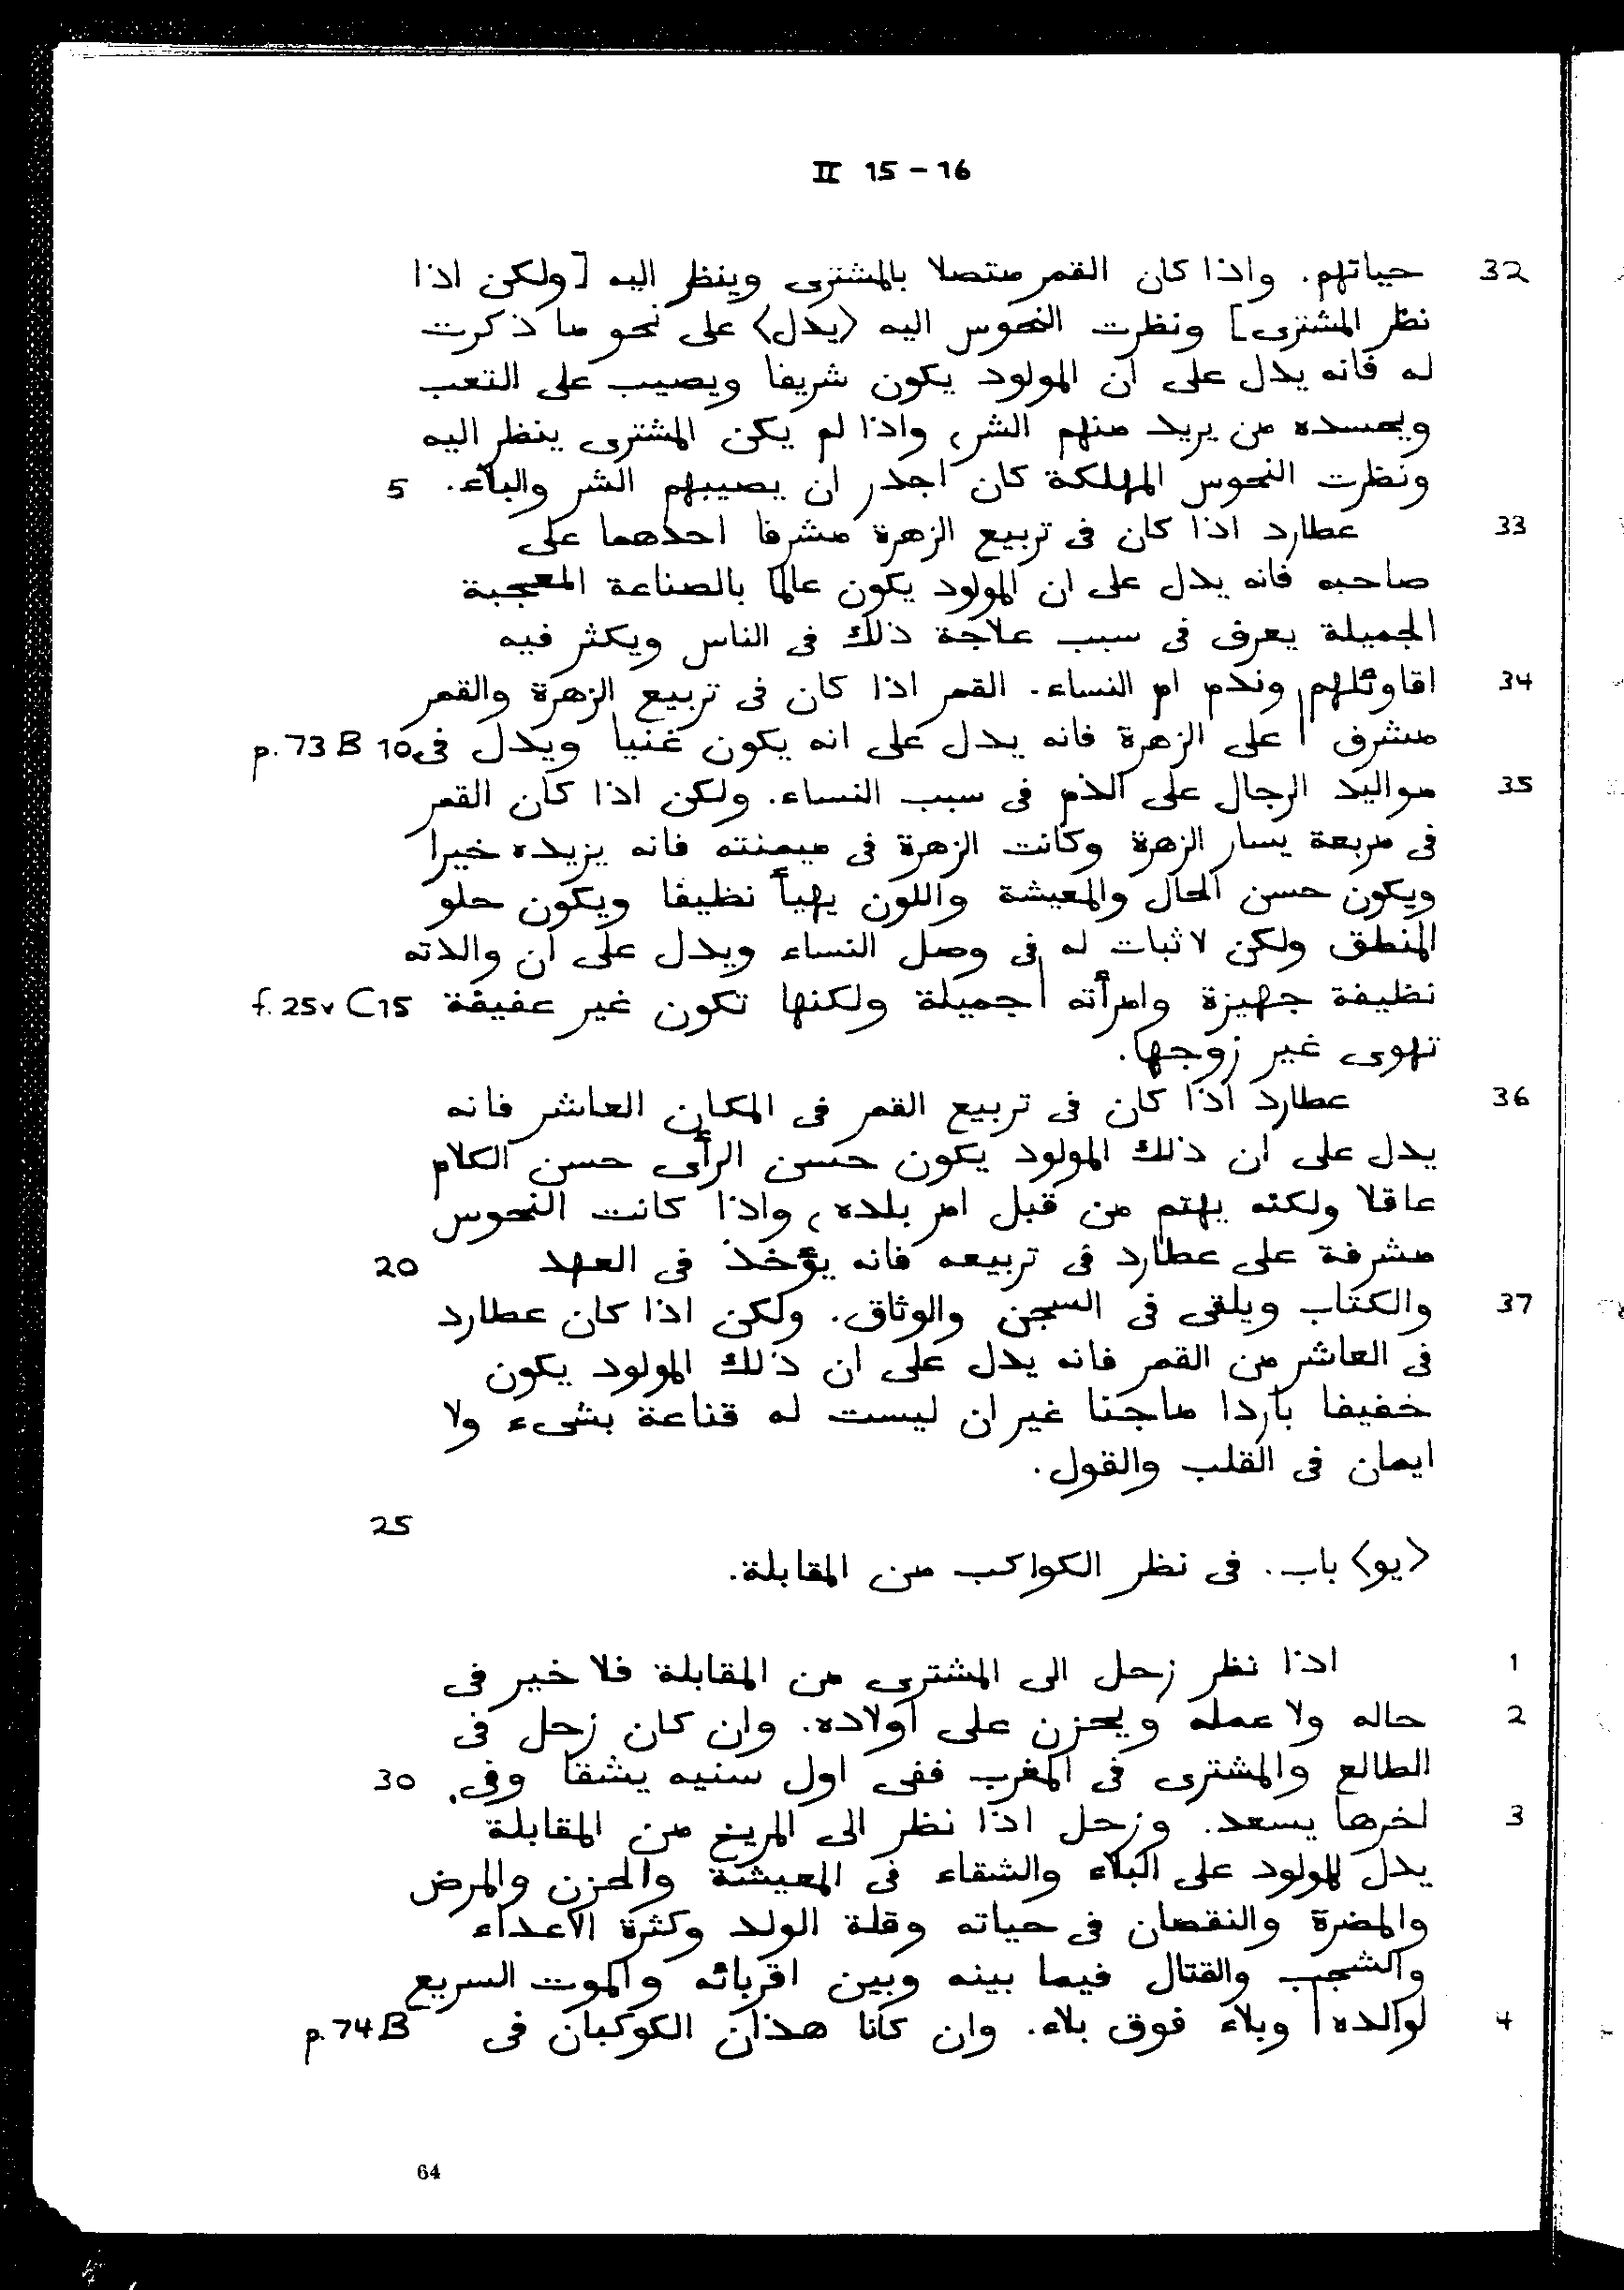 II 15-16
32 حياتهم. واذا كان القمر متصلا بالمشترى وينظر اليه [ولكن اذا
نظر المشترى] ونظرت النحوس اليه 〈يدل〉 على نحو ما ذكرت
له فانه يدل على ان المولود يكون شريفا ويصيب على التعب
ويحسده من يريد منهم الشر، واذا لم يكن المشترى ينظر اليه
ونظرت النحوس المهلكة كان اجدر ان يصيبهم الشر والبلاء. 5
33 عطارد اذا كان فى تربيع الزهرة مشرفا احدهما على
صاحبه فانه يدل على ان المولود يكون عالما بالصناعة المعجبة
الجميلة يعرف فى سبب علاجة ذلك فى الناس ويكثر فيه
34 اقاوئلهم وندم ام النساء. القمر اذا كان فى تربيع الزهرة والقمر
مشرف | على الزهرة فانه يدل على انه يكون غنيا ويدل فى 10 p. 73 B
35 مواليد الرجال على الذم فى سبب النساء. ولكن اذا كان القمر
فى مربعة يسار الزهرة وكانت الزهرة فى ميمنته فانه يزيده خيرا
ويكون حسن الحال والمعيشة واللون يهيأ نظيفا ويكون حلو
المنطق ولكن لا ثبات له فى وصل النساء ويدل على ان والدته
نظيفة جهيزة وامرأته | جميلة ولكنها تكون غير عفيفة 15 f. 25v C
تهوى غير زوجها.
36 عطارد اذا كان فى تربيع القمر فى المكان العاشر فانه
يدل على ان ذلك المولود يكون حسن الرأى حسن الكلام
عاقلا ولكنه يهتم من قبل امر بلده، واذا كانت النحوس
مشرفة على عطارد فى تربيعه فانه يؤخذ فى العهد 20
37 والكتاب ويلقى فى السجن والوثاق. ولكن اذا كان عطارد
فى العاشر من القمر فانه يدل على ان ذلك المولود يكون
خفيفا باردا ماجنا غير ان ليست له قناعة بشىء ولا
ايمان فى القلب والقول.
25
〈يو〉 باب. فى نظر الكواكب من المقابلة.
1 اذا نظر زحل الى المشترى من المقابلة فلا خير فى
2 حاله ولا عمله ويحزن على اولاده. وان كان زحل فى
الطالع والمشترى فى المغرب ففى اول سنيه يشقا وفى 30
3 اخرها يسعد. وزحل اذا نظر الى المريخ من المقابلة
يدل للمولود على البلاء والشقاء فى المعيشة والحزن والمرض
والمضرة والنقصان فى حياته وقلة الولد وكثرة الاعداء
والشجب والقتال فيما بينه وبين اقربائه والموت السريع
4 لوالده | وبلاء فوق بلاء. وان كانا هذان الكوكبان فى p. 74 B
64